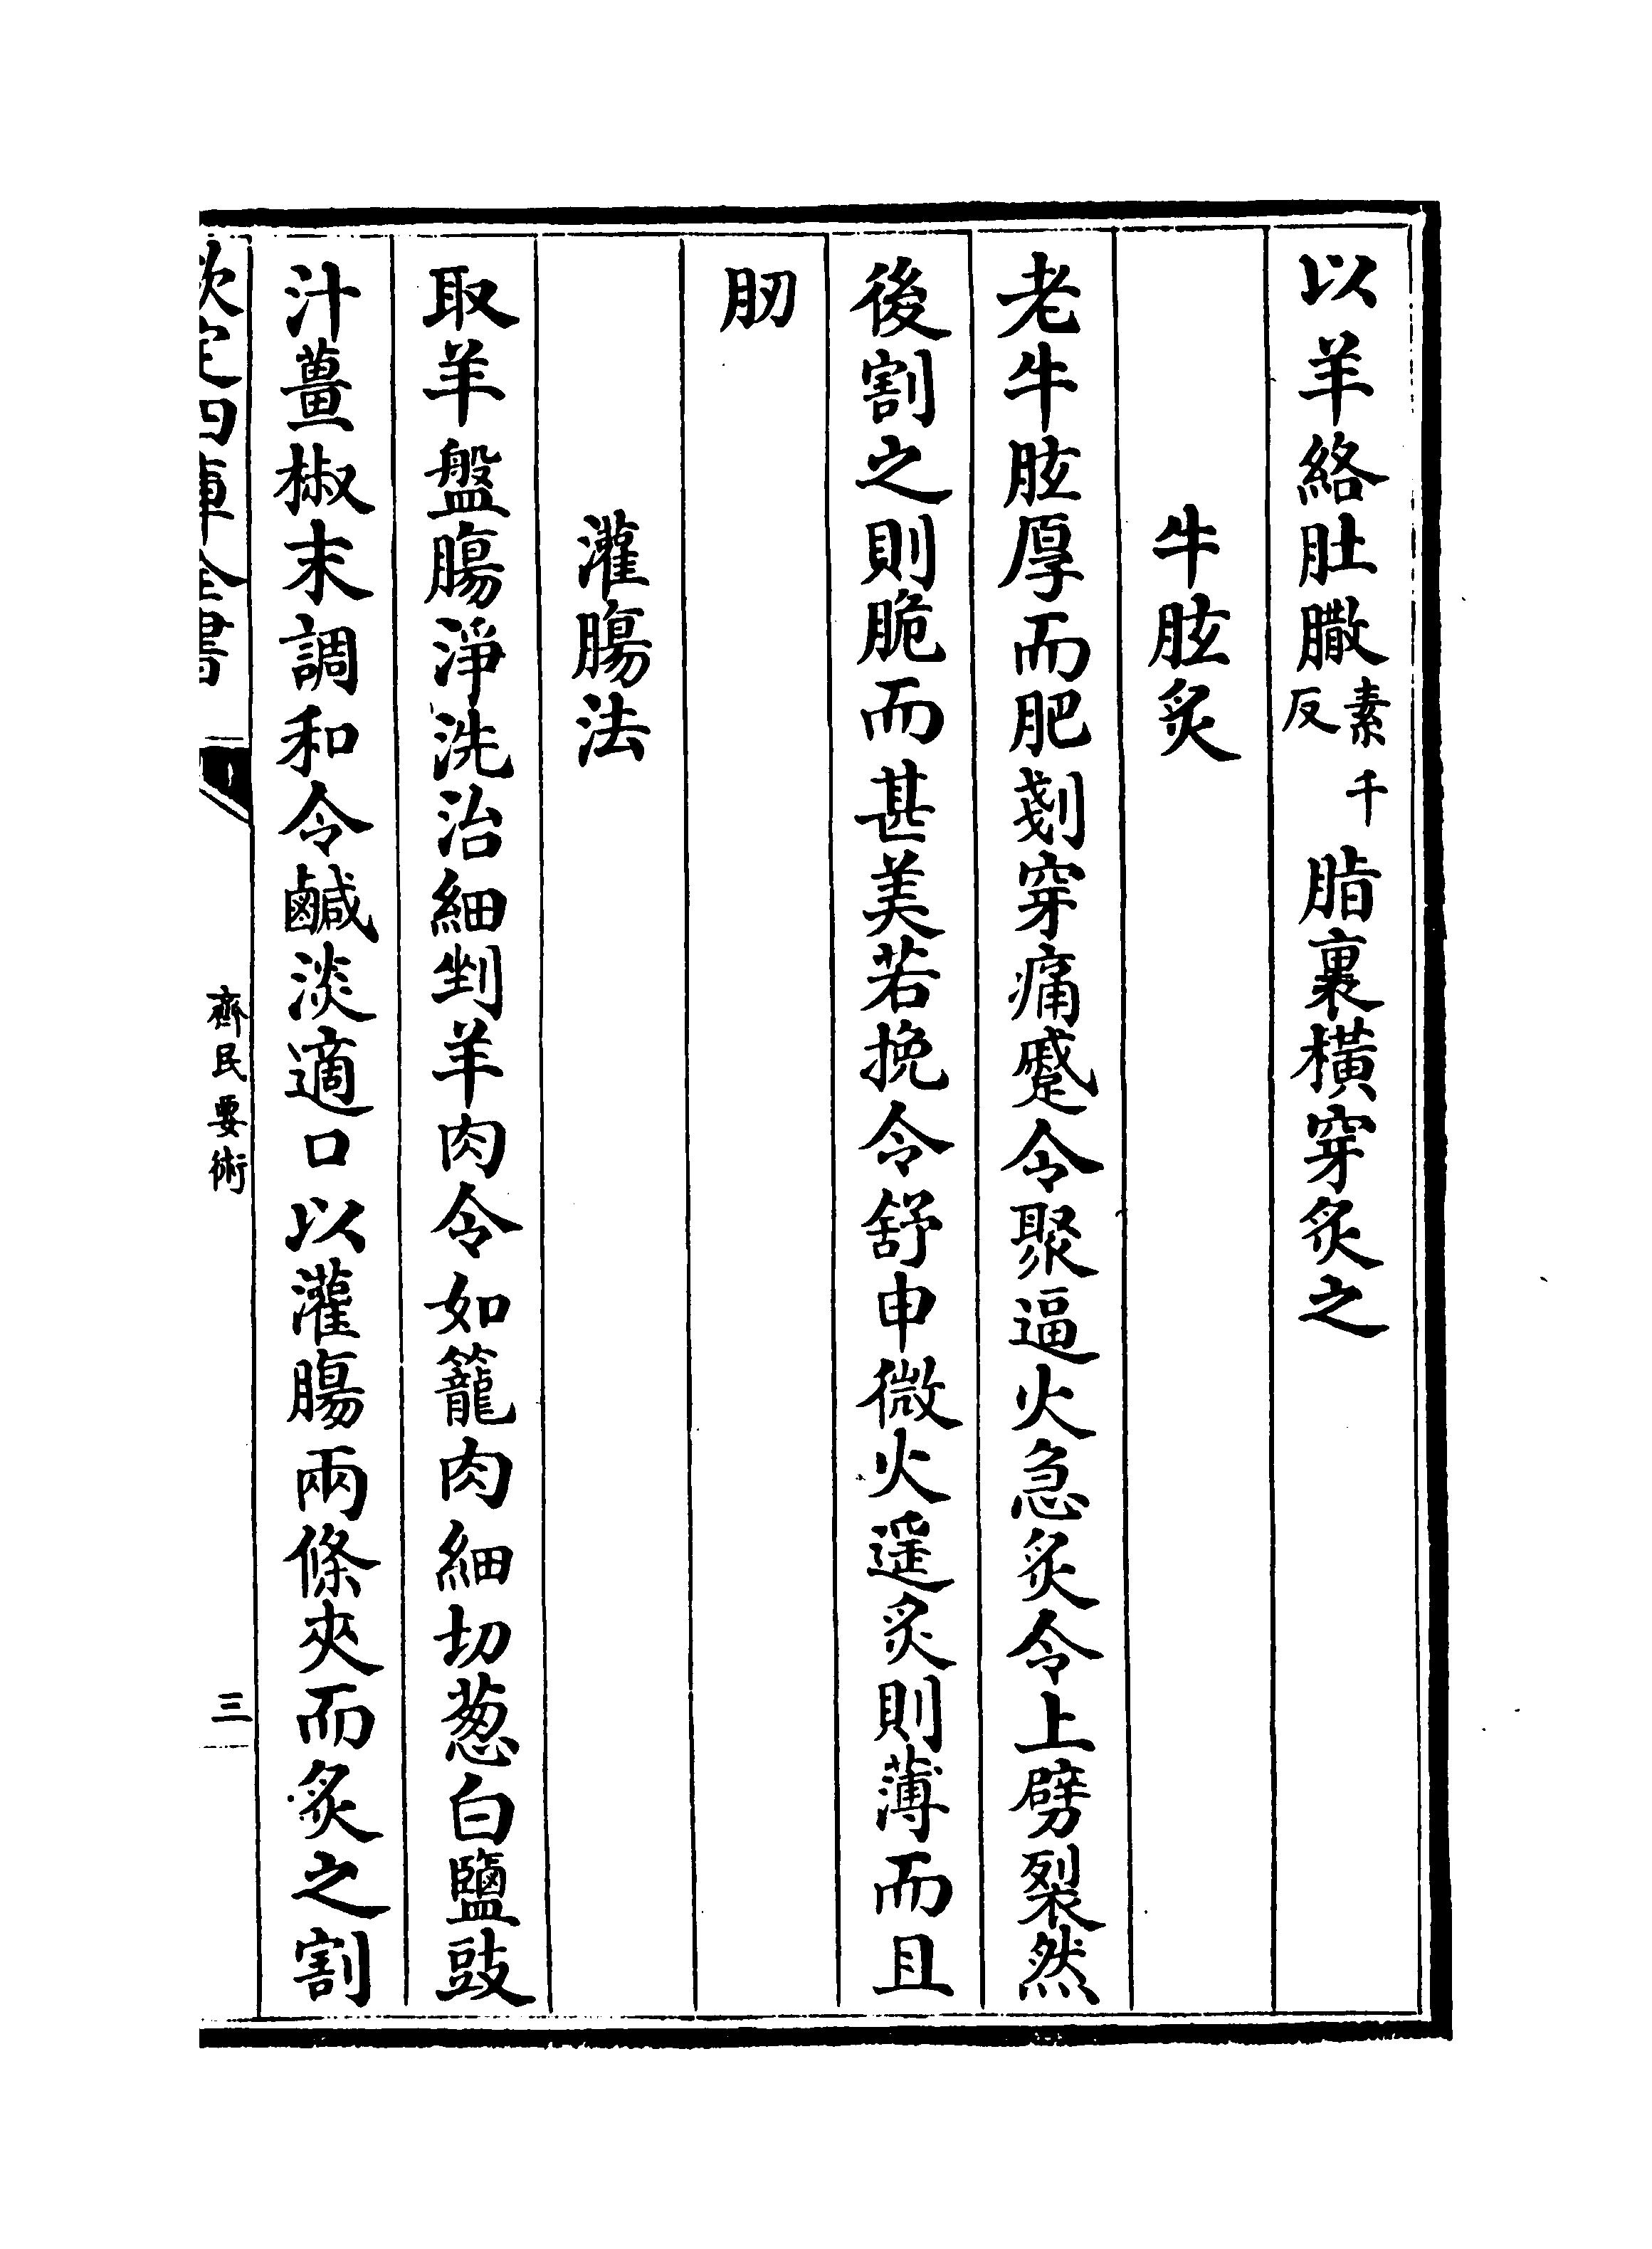 以羊絡肚𦠿素千反脂裹橫穿炙之
牛胘炙
老牛胘厚而肥剗穿痛蹙令聚逼火急炙令上劈裂然
後割之則脆而甚美若挽令舒申微火遥炙則薄而且
肕
灌膓法
取羊盤膓淨洗治細剉羊肉令如籠肉細切葱白鹽豉
汁薑椒末調和令鹹淡適口以灌膓兩條夾而炙之割
欽定四庫全書
齊民要術
三